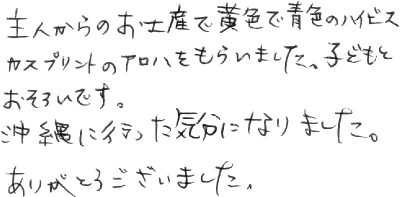 主人からのお土産で黄色で青色のハイビス
カスプリントのアロハをもらいました。子どもと
おそろいです。
沖縄に行った気分になりました。
ありがとうございました。